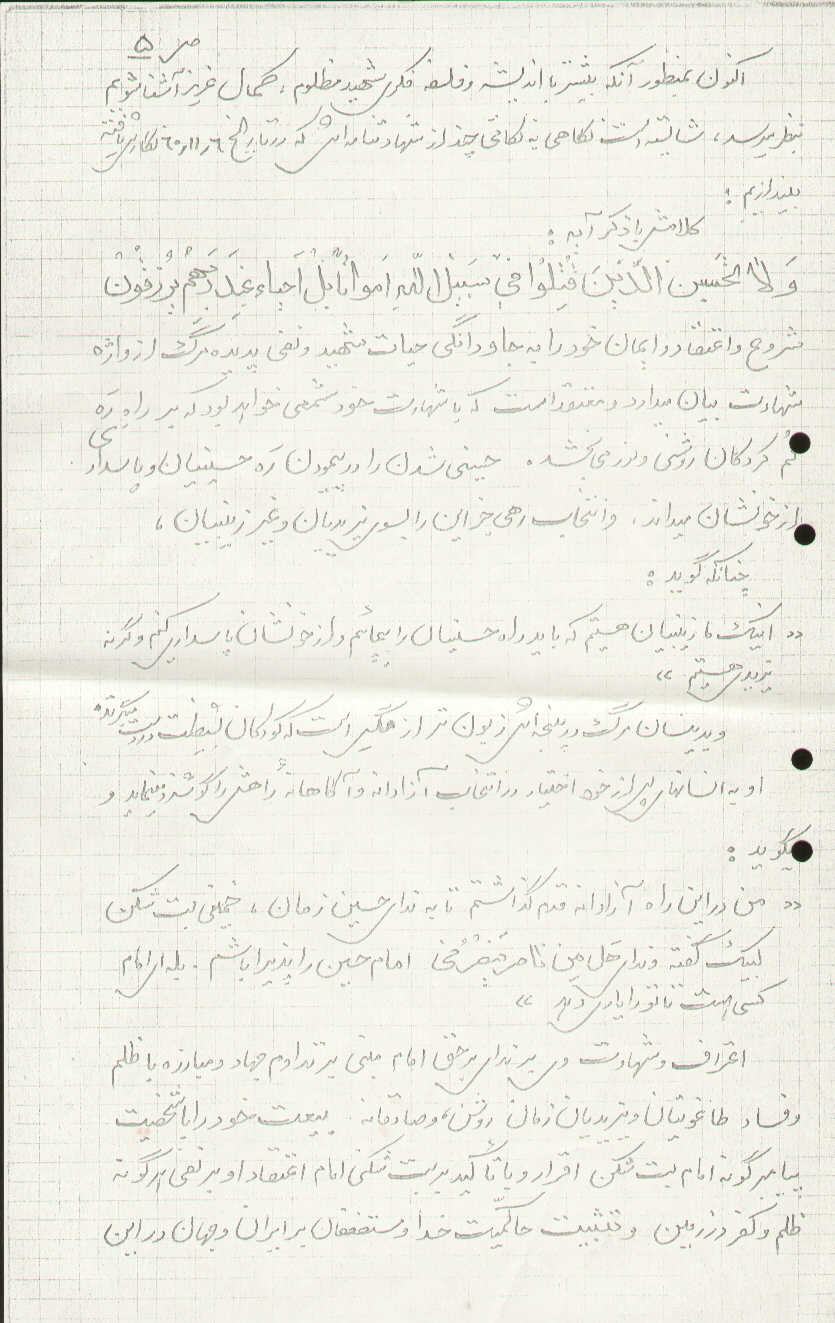 ص ۵
اکنون بمنظور آنکه بیشتر با اندیشه و فلسفه فکری شهید مظلوم، کمال عزیز آشنا شویم
بنظر میرسد، شایسته است نگاهی به نکاتی چند از شهادتنامه اش که در تاریخ ۶۰/۱۱/۶ نگارش یافته
بیندازیم:
کلامش با ذکر آیه:
وَ لا تحسبن الَّذینَ قُتِلُوا فی سَبیلِ اللّهِ اَمواتاً بَلْ اَحیاء عِندَ رَبِّهِم یُرْزَقُونْ
شروع و اعتقاد و ایمان خود را به جاودانگی حیات شهید و نفی پدیده مرگ از واژه
شهادت بیان میدارد و معتقد است که با شهادت خود شمعی خواهد بود که بر راه رَه
گم کردگان روشنی و نور می بخشد. حسینی شدن را در پیمودن رَه حسینیان و پاسداری
از خونشان میداند. و انتخاب رهی جز این را بسوی یزیدیان و غیر زینبیان،
چنانکه گوید:
«اینک ما زینبیان هستیم که باید راه حسینیان را بپیمائیم و از خونشان پاسداری کنیم وگرنه
یزیدی هستیم»
و بدینسان مرگ در پنجه اش زبون تر از گنجشکی است که کودکان بشیطنت در دست میگیرند
او به انسانهای پس از خود اختیار در انتخاب آزادانه و آگاهانهٔ راهش را گوشزد مینماید و
میگوید:
«من در این راه آزادانه قدم گذاشتم تا به ندای حسین زمان، خمینی بت شکن
لبیک گفته و ندای هَل مِن ناصر یَنصُرُنی امام حسین را پذیرا باشم. بله ای امام
کسی هست تا تو را یاری دهد»
اعتراف و شهادت وی بر ندای برحق امام مبنی بر تداوم جهاد و مبارزه با ظلم
و فساد طاغوتیان و یزیدیان زمان روشن و صادقانه. بیعت خود را با شخصیت
پیامبرگونه امام بت شکن اقرار و با تأکید بر بت شکنی امام اعتقاد او بر نفی هرگونه
ظلم و کفر در زمین و تثبیت حاکمیّت خدا و مستضعفان بر ایران و جهان در این